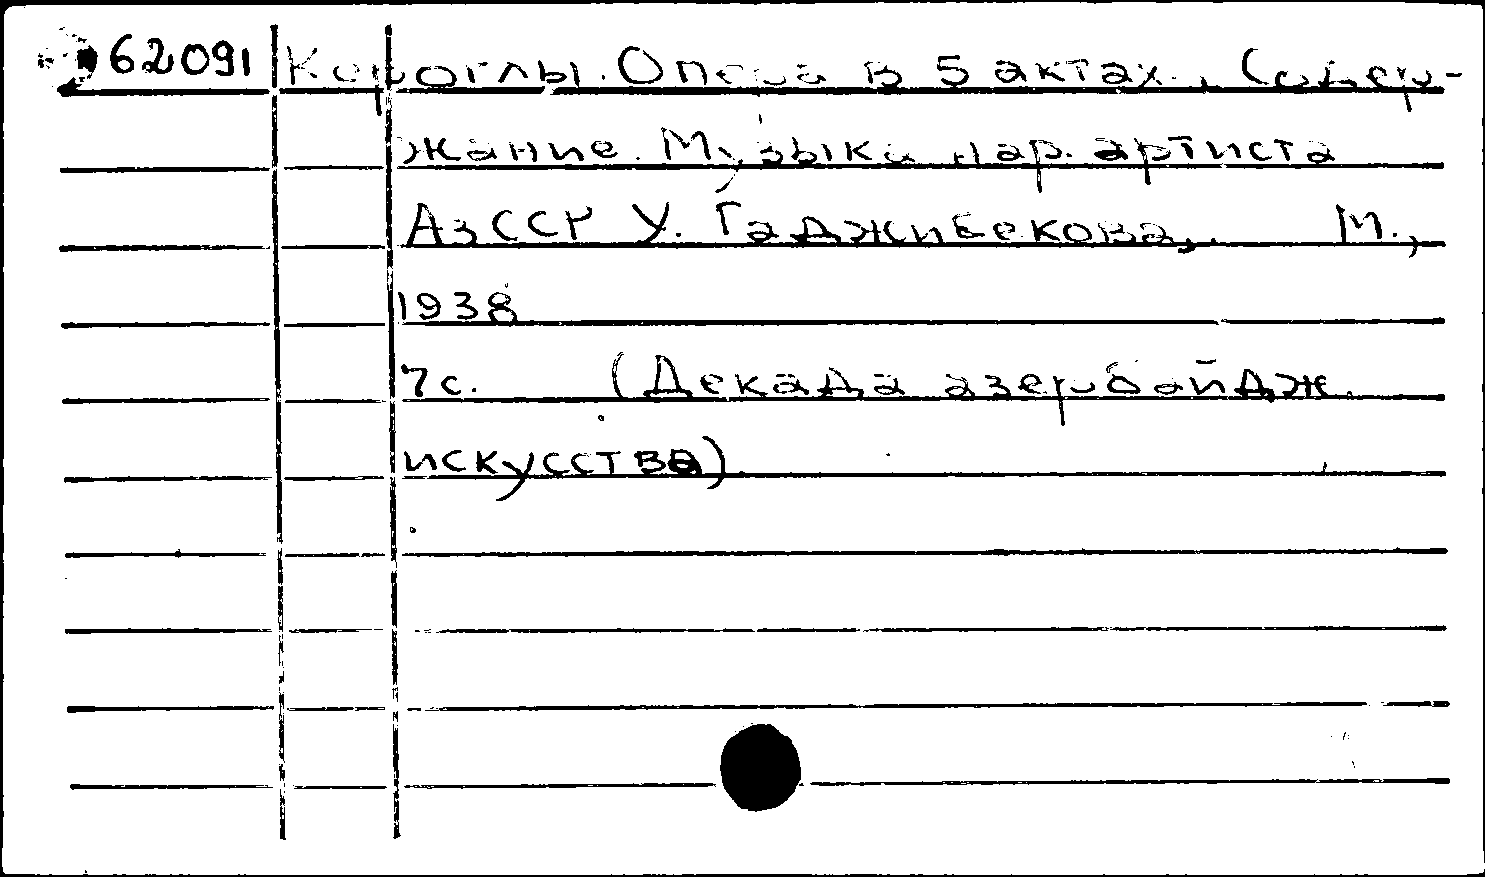 62091 Короглы. Опера в 5 актах. Содер-
жание. Музыка нар. артиста
АзССР У. Гаджибекова, М.,
1938
7с. (Декада азербайдж.
искусства)